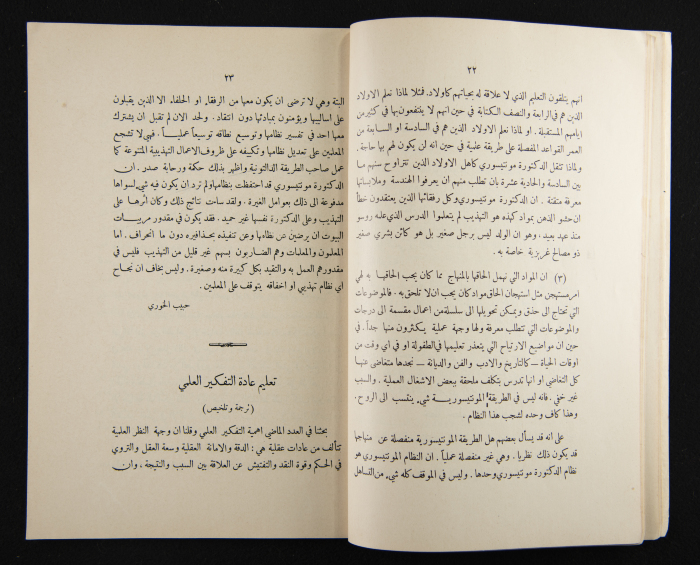 ٢٢
انهم يتلقون التعليم الذي لا علاقة له بحياتهم كاولاد. فمثلا لماذا نعلم الاولاد
الذين هم في الرابعة والنصف الكتابة في حين انهم لا ينتفعون بها في كثير من
ايامهم المستقبلة. او لماذا نعلم الاولاد الذين هم في السادسة او السابعة من
العمر القواعد المفصلة على طريقة علمية في حين انه لن يكون لهم بها حاجة.
ولماذا تثقل الدكتورة مونتيسوري كاهل الاولاد الذين تتراوح سنهم ما
بين السادسة والحادية عشرة بان تطلب منهم ان يعرفوا الهندسة وملابساتها
معرفة متقنة. ان الدكتورة مونتيسوري وكل رفقائها الذين يعتقدون خطأ
ان حشو الذهن بمواد كهذه هو التهذيب لم يتعلموا الدرس الذي علمه روسو
منذ عهد بعيد، وهو ان الولد ليس برجل صغير بل هو كائن بشري صغير
ذو مصالح غريزية خاصة به.
(٣) ان المواد التي نهمل الحاقها بالمنهاج مما كان يجب الحاقها به لهي
امر مستهجن مثل استهجان الحاق مواد كان يجب ان لا تلحق به. فالموضوعات
التي تحتاج الى حذق ويمكن تحويلها الى سلسلة من اعمال مقسمة الى درجات
والموضوعات التي تتطلب معرفة ولها وجهة عملية يكثرون منها جداً. في
حين ان مواضيع الارتياح التي يتعذر تعليمها في الطفولة او في اي وقت من
اوقات الحياة – كالتاريخ والادب والفن والديانة – نجدها متغاضى عنها
كل التغاضي او انها تدرس بتكلف ملحقة ببعض الاشغال العملية. والسبب
غير خفي. فانه ليس في الطريقة المونتيسورية شيء ينتسب الى الروح.
وهذا كاف وحده لشجب هذا النظام.
على انه قد يسأل بعضهم هل الطريقة المونتيسورية منفصلة عن منهاجها
قد يكون ذلك نظريا. وهي غير منفصلة عملياً. ان النظام المونتيسوري هو
نظام الدكتورة مونتيسوري وحدها. وليس في الموقف كله شيء من التساهل
٢٣
البتة وهي لا ترضى ان يكون معها من الرفقاء او الحلفاء الا الذين يقبلون
على اساليبها ويؤمنون بمبادئها دون انتقاد. ولحد الان لم تقبل ان يشترك
معها احد في تفسير نظامها وتوسيع نطاقه توسيعاً عملياً. فهي لا تشجع
المعلمين على تعديل نظامها وتكييفه على ظروف الاعمال التهذيبية المتنوعة كما
عمل صاحب الطريقة الدالتونية واظهر بذلك حكمة ورحابة صدر. ان
الدكتورة مونتيسوري قد احتفظت بنظامها ولم ترد ان يكون فيه شيء لسواها
مدفوعة الى ذلك بعوامل الغيرة. ولقد ساءت نتائج ذلك وكان اثرها على
التهذيب وعلى الدكتورة نفسها غير حميد. فقد يكون في مقدور مربيات
البيوت ان يرضين عن نظامها وعن تنفيذه بحذافيره دون ما انحراف. اما
المعلمون والمعلمات وهم الضاربون بسهم غير قليل من التهذيب فليس في
مقدورهم العمل به والتقيد بكل كبيرة منه وصغيرة. وليس بخاف ان نجاح
اي نظام تهذيبي او اخفاقه يتوقف على المعلمين.
حبيب الخوري
تعليم عادة التفكير العلمي
(ترجمة وتلخيص)
بحثنا في العدد الماضي اهمية التفكير العلمي وقلنا ان وجهة النظر العلمية
تتألف من عادات عقلية هي: الدقة والامانة العقلية وسعة العقل والتروي
في الحكم وقوة النقد والتفتيش عن العلاقة بين السبب والنتيجة، وان